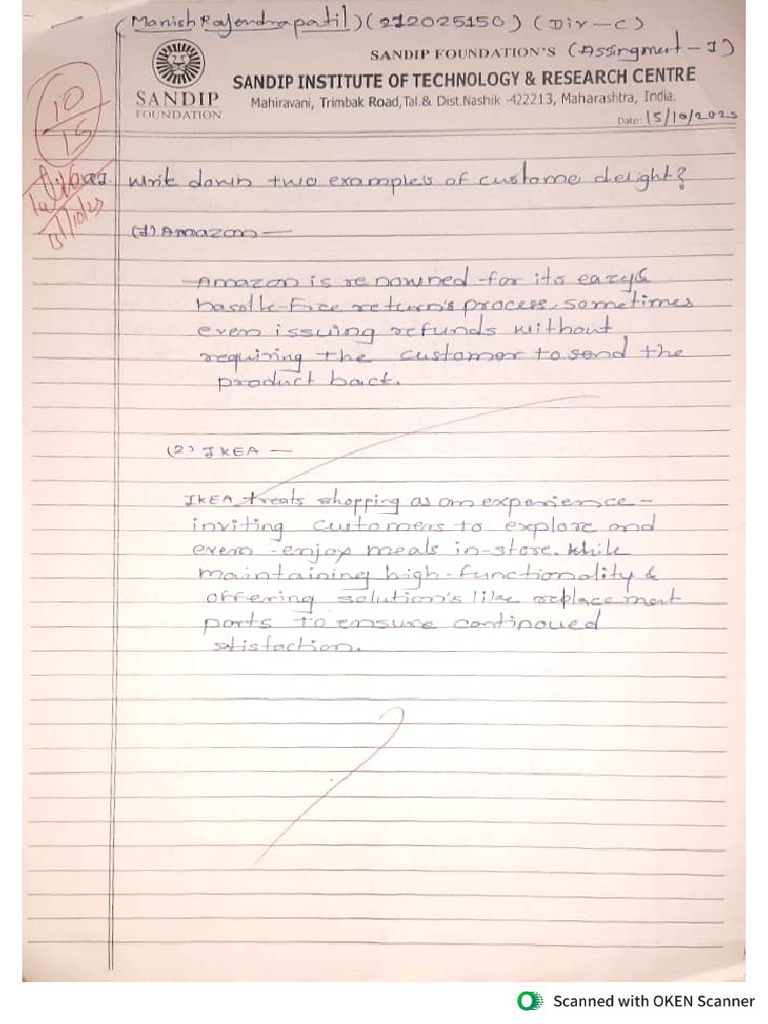 (Manish Rajendra patil) (212025150) (Div-C)
SANDIP FOUNDATION'S (Assingment-I)
SANDIP INSTITUTE OF TECHNOLOGY & RESEARCH CENTRE
SANDIP
FOUNDATION
Mahiravani, Trimbak Road, Tal. & Dist. Nashik -422213, Maharashtra, India.
Date: 15/10/2025
10
15
write down two examples of custome delight?
(1) Amazon —
Amazon is renowned for its eazy &
hassle-free return's process, sometimes
even issuing refunds without
requiring the customer to send the
product back.
(2) IKEA —
IKEA treats shopping as an experience -
inviting customers to explore and
even enjoy meals in-store. while
maintaining high-functionality &
offering solution's like replacement
parts to ensure continoued
stisfaction.
Scanned with OKEN Scanner